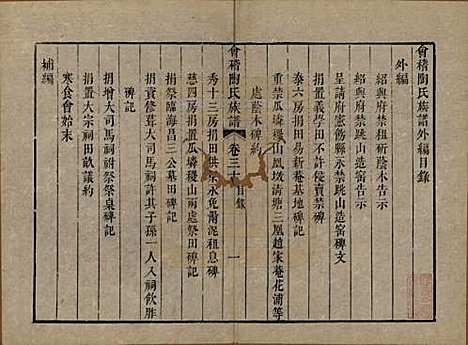 會稽陶氏族譜外編目錄
外編
紹興府禁租斫蔭木告示
紹興府禁跳山造窑告示
呈請府憲飭縣永禁跳山造窑碑文
捐置義學田不許侵賣禁碑
泰六房捐田易新菴基地碑記
重禁瓜墳
山鳳墩清塘三凰趙家菴花浦等
處蔭木碑約
會稽陶氏族譜
卷三十
目錄
一
秀十三房捐田
永免
泥租息碑
慈四房捐置瓜墳稷山兩處祭田碑記
捐祭臨海昌三公墓田碑記
捐資修葺大司馬祠許其子孫一人入祠飲胙
碑記
捐增大司馬祠祔祭祭桌碑記
捐置大宗祠田畝議約
寒食會始末
補編